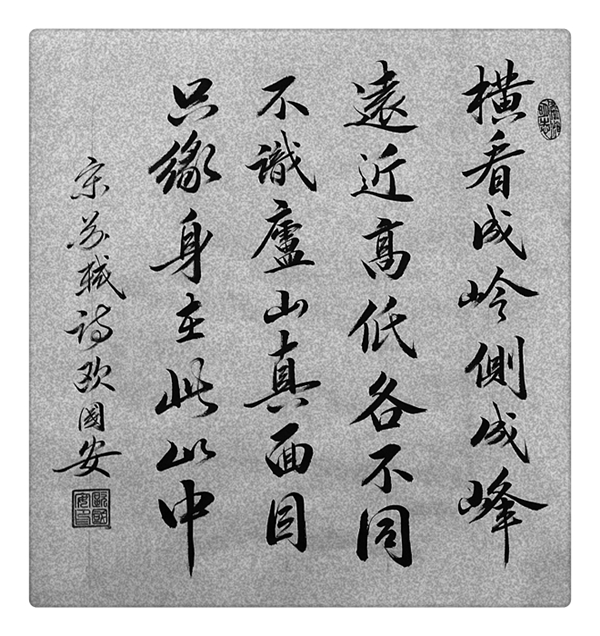 橫看成岭側成峰
遠近高低各不同
不識廬山真面目
只緣身在此山中
宋苏轼诗欧國安